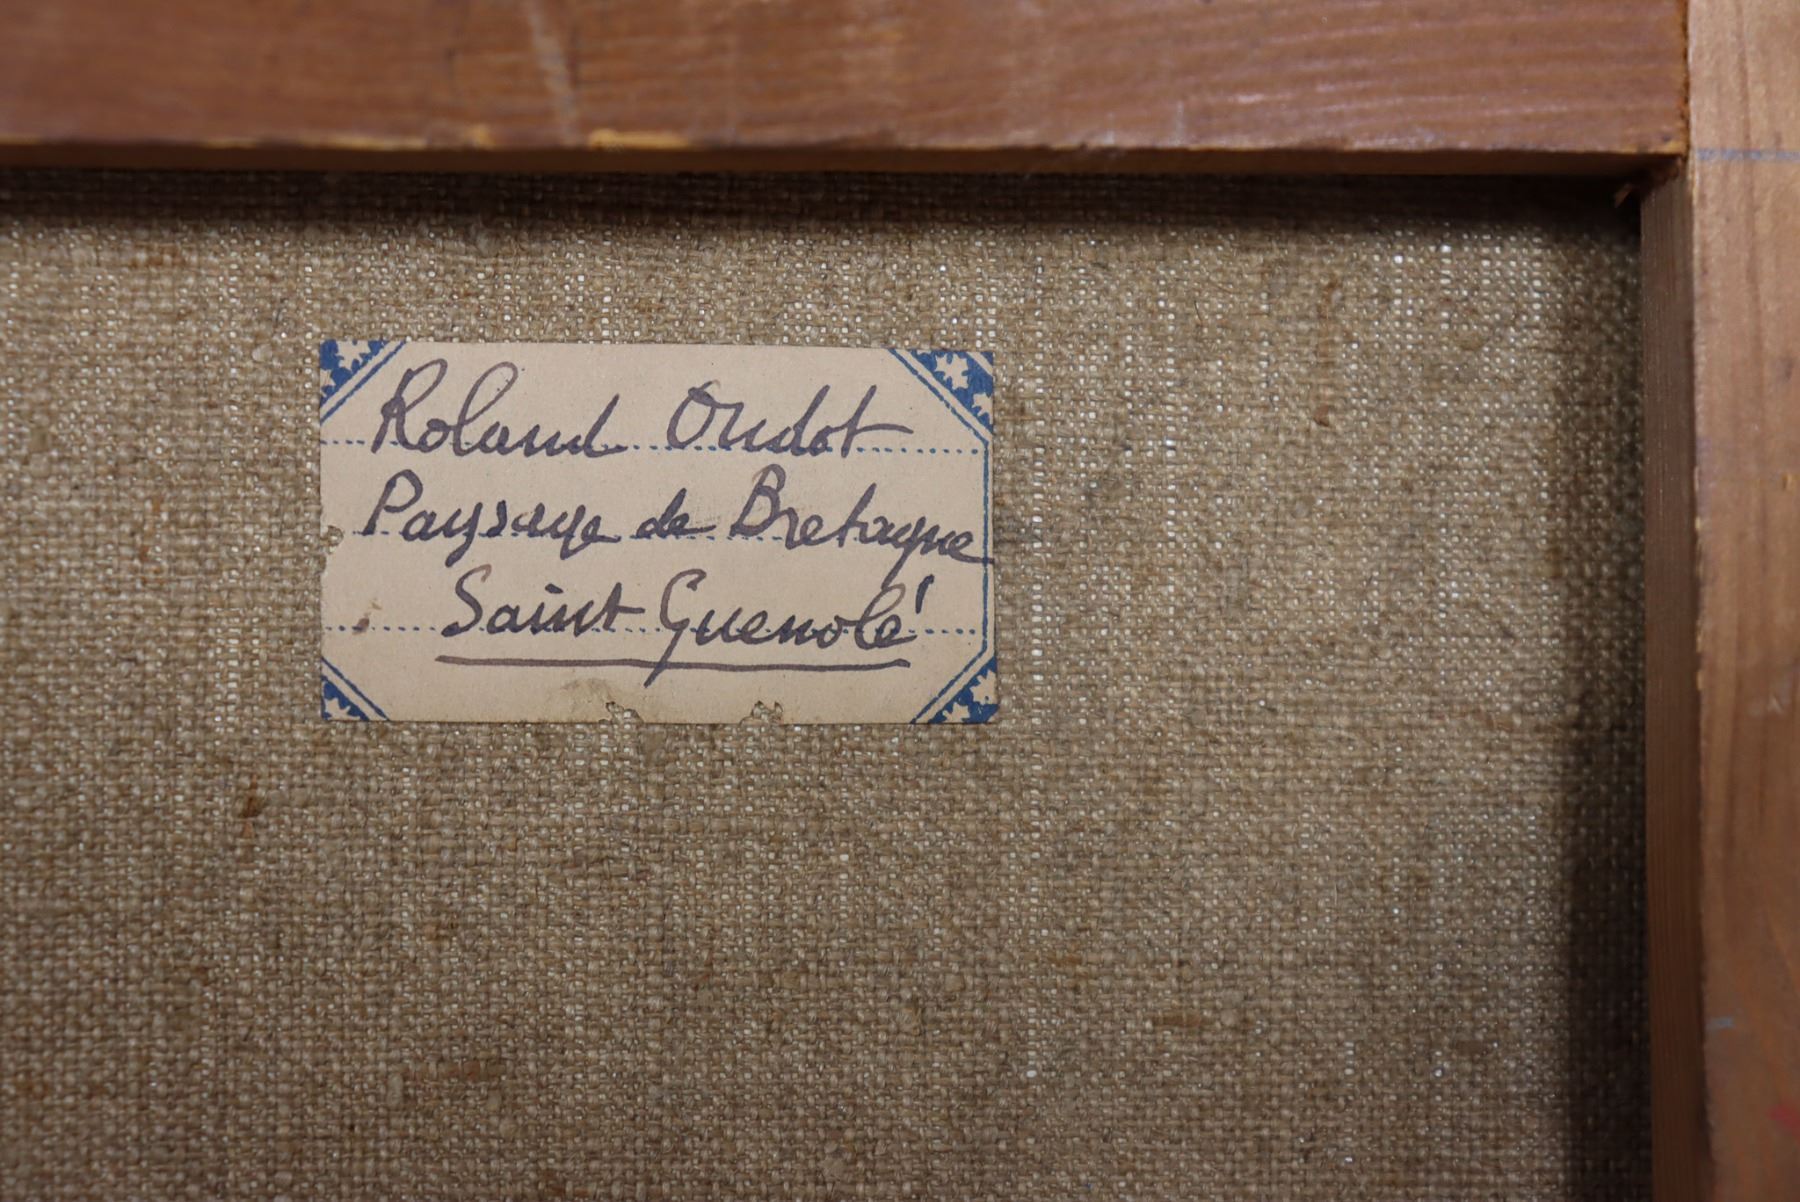 Roland Oudot
Paysage de Bretagne
Saint Guenolé